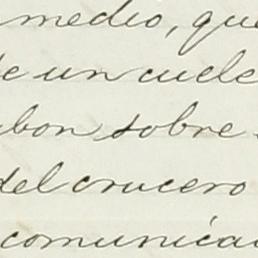 medio, que
de un cuele
bon sobre
del crucero
comunica